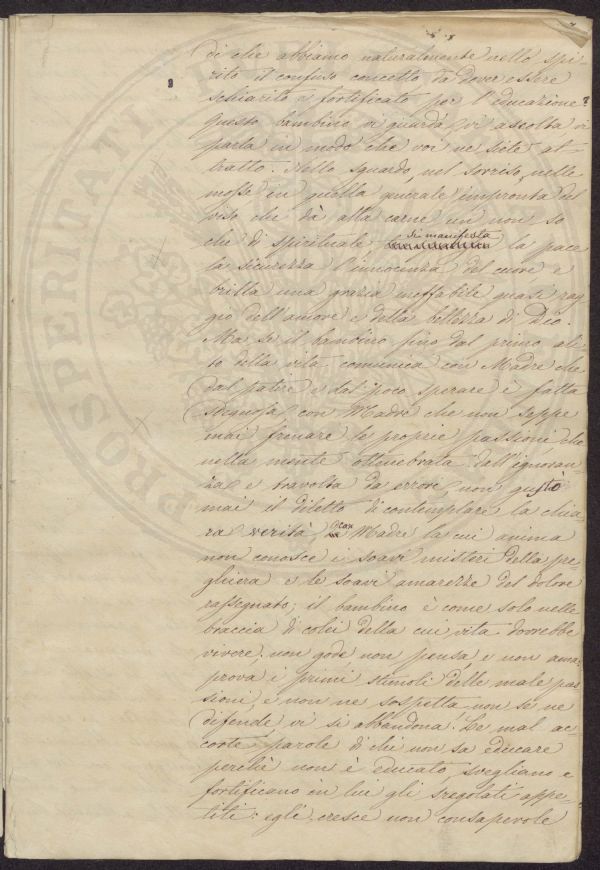 di che abbiamo naturalmente nello spi-
rito il confuso concetto da dover essere
schiarito e fortificato per l'educazione?
questo bambino vi guarda, vi ascolta vi
parla in modo che voi ne siete at-
tratto. Nello sguardo, nel sorriso, nelle
mosse in quella generale impronta del
viso che dà alla carne un non so
che di spirituale si manifesta la pace
la sicurezza l'innocenza del cuore e
brilla una grazia ineffabile quasi rag-
gio dell'amore e della bellezza di Dio.
Ma se il bambino fino dal primo ali-
to della vita comunica con Madre che
dal patire e dal poco sperare è fatta
sdegnosa, con Madre che non seppe
mai frenare le proprie passioni che
nella mente ottenebrata dall'ignoran-
za e travolta da errore non gustò
mai il diletto di contemplare la chia-
ra verità, con Madre la cui anima
non conosce i soavi misteri della pre-
ghiera e le soavi amarezze del dolore
rassegnato; il bambino è come solo nelle
braccia di colei della cui vita dovrebbe
vivere: non gode non pensa, e non ama:
prova i primi stimoli delle male pas-
sioni, e non ne sospetta non se ne
difende vi si abbandona! Le mal ac-
corte parole di chi non sa educare
perchè non è educato, svegliano e
fortificano in lui gli sregolati appe-
titi: egli cresce non consapevole
PROSPERITATI